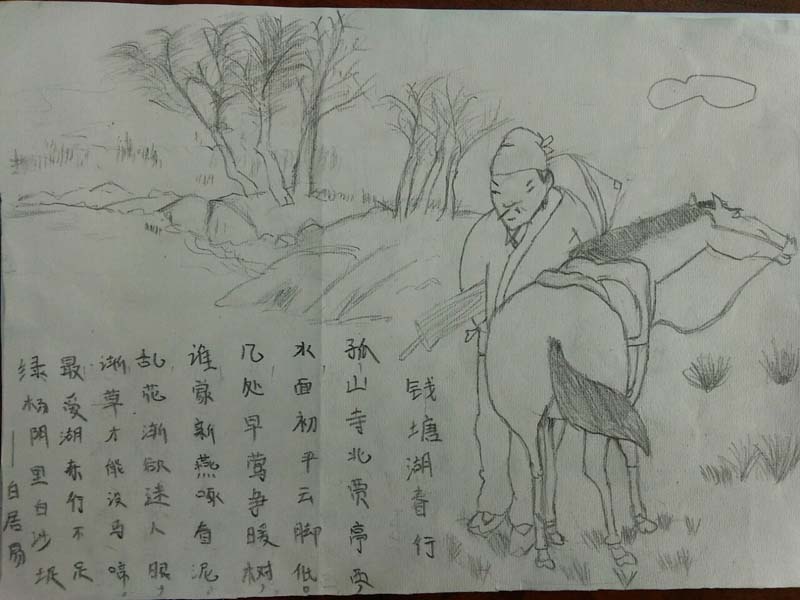 钱塘湖春行
孤山寺北贾亭西,
水面初平云脚低。
几处早莺争暖树,
谁家新燕啄春泥。
乱花渐欲迷人眼,
渐草才能没马啼。
最爱湖东行不足
绿杨阴里白沙堤
——白居易